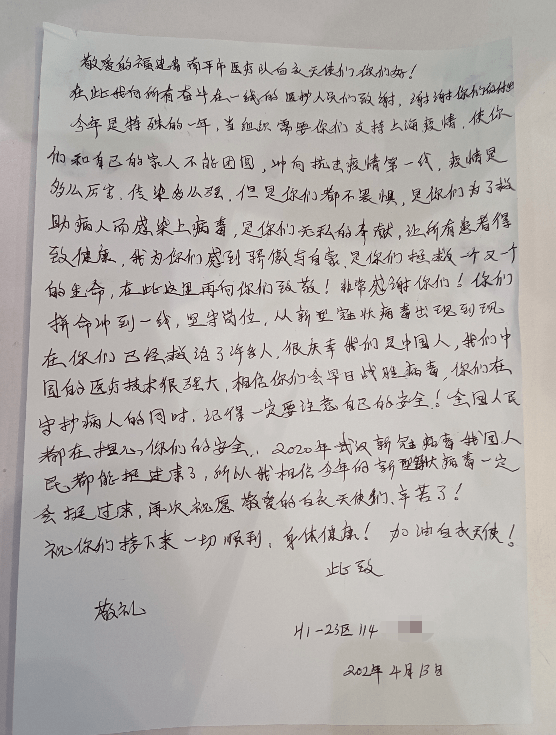 敬爱的福建省南平市医疗队白衣天使们你们好！
在此我向所有奋斗在一线的医护人员们致谢，谢谢你们的付出
今年是特殊的一年，当组织需要你们支持上海疫情，使你
们和自己的家人不能团圆，冲向抗击疫情第一线，疫情是
多么厉害，传染多么强，但是你们都不畏惧，是你们为了救
助病人而感染上病毒，是你们无私的奉献，让所有患者得
致健康，我为你们感到骄傲与自豪，是你们拯救一个又一个
的生命，在此这里再向你们致敬！非常感谢你们！你们
拼命冲到一线，坚守岗位，从新型冠状病毒出现到现
在你们已经救治了许多人，很庆幸我们是中国人，我们中
国的医疗技术很强大，相信你们会早日战胜病毒，你们在
守护病人的同时，记得一定要注意自己的安全！全国人民
都在担心你们的安全，2020年武汉新冠病毒我国人
民都能挺过来了，所以我相信今年的新型病毒一定
会挺过来，再次祝愿敬爱的白衣天使们，辛苦了！
祝你们接下来一切顺利，身体健康！加油白衣天使！
此致
敬礼
H1-23区114
202年4月13日